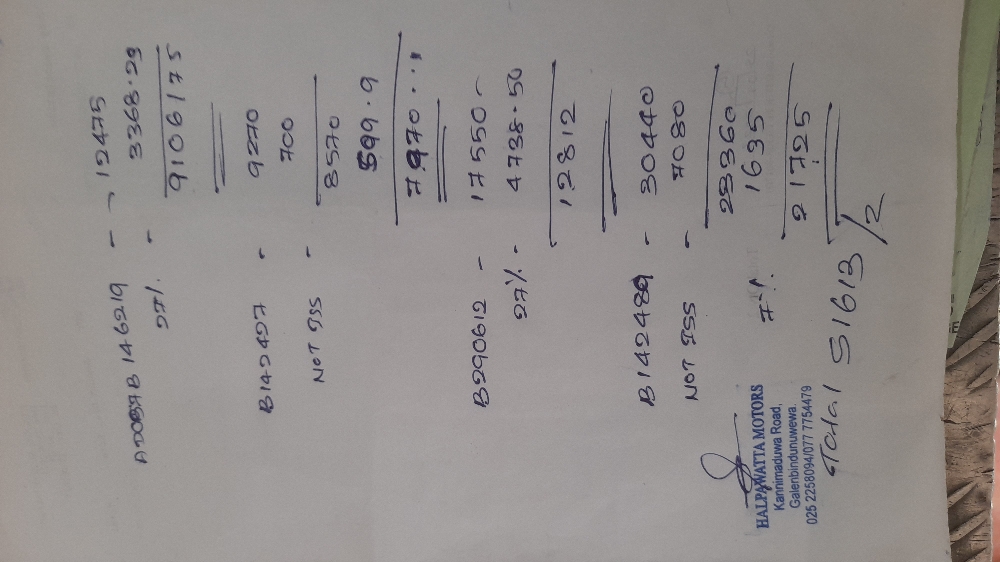 B 146219 - 12475
27% - 3368.29
9106175
B142497 - 9270
NOT ISS - 700
8570
599.9
7970..
B290612 - 17550 -
27% - 4738.50
12812
B142489 - 30440
NOT ISS - 7080
23360
7% 1635
21725
Total 51613/2
HALPAWATTA MOTORS
Kannimaduwa Road,
Galenbindunuwewa.
025 2258094/077 7754479